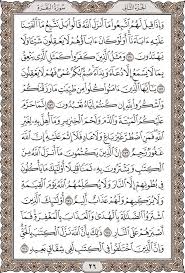 الجزء الثاني سورة البقرة
وَإِذَا قِيلَ لَهُمُ اتَّبِعُوا مَا أَنزَلَ اللَّهُ قَالُوا بَلْ نَتَّبِعُ مَا أَلْفَيْنَا
عَلَيْهِ ءَابَاءَنَا أَوَلَوْ كَانَ ءَابَاؤُهُمْ لَا يَعْقِلُونَ شَيْئًا وَلَا
يَهْتَدُونَ ١٧٠ وَمَثَلُ الَّذِينَ كَفَرُوا كَمَثَلِ الَّذِي يَنْعِقُ
بِمَا لَا يَسْمَعُ إِلَّا دُعَاءً وَنِدَاءً صُمٌّ بُكْمٌ عُمْيٌ فَهُمْ لَا يَعْقِلُونَ
١٧١ يَٰأَيُّهَا الَّذِينَ ءَامَنُوا كُلُوا مِن طَيِّبَٰتِ مَا رَزَقْنَٰكُمْ
وَاشْكُرُوا لِلَّهِ إِن كُنتُمْ إِيَّاهُ تَعْبُدُونَ ١٧٢ إِنَّمَا حَرَّمَ عَلَيْكُمُ
الْمَيْتَةَ وَالدَّمَ وَلَحْمَ الْخِنزِيرِ وَمَا أُهِلَّ بِهِ لِغَيْرِ اللَّهِ
فَمَنِ اضْطُرَّ غَيْرَ بَاغٍ وَلَا عَادٍ فَلَا إِثْمَ عَلَيْهِ إِنَّ اللَّهَ
غَفُورٌ رَّحِيمٌ ١٧٣ إِنَّ الَّذِينَ يَكْتُمُونَ مَا أَنزَلَ اللَّهُ مِنَ
الْكِتَٰبِ وَيَشْتَرُونَ بِهِ ثَمَنًا قَلِيلًا أُولَٰئِكَ مَا يَأْكُلُونَ
فِي بُطُونِهِمْ إِلَّا النَّارَ وَلَا يُكَلِّمُهُمُ اللَّهُ يَوْمَ الْقِيَٰمَةِ
وَلَا يُزَكِّيهِمْ وَلَهُمْ عَذَابٌ أَلِيمٌ ١٧٤ أُولَٰئِكَ الَّذِينَ
اشْتَرَوُا الضَّلَٰلَةَ بِالْهُدَىٰ وَالْعَذَابَ بِالْمَغْفِرَةِ فَمَا
أَصْبَرَهُمْ عَلَى النَّارِ ١٧٥ ذَٰلِكَ بِأَنَّ اللَّهَ نَزَّلَ الْكِتَٰبَ بِالْحَقِّ
وَإِنَّ الَّذِينَ اخْتَلَفُوا فِي الْكِتَٰبِ لَفِي شِقَاقٍ بَعِيدٍ ١٧٦
٢٦